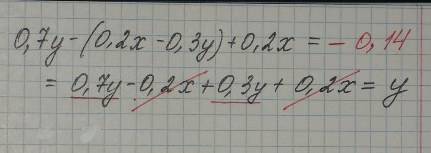 0,7y-(0,2x-0,3y)+0,2x = - 0,14
= 0,7y-0,2x+0,3y+0,2x = y